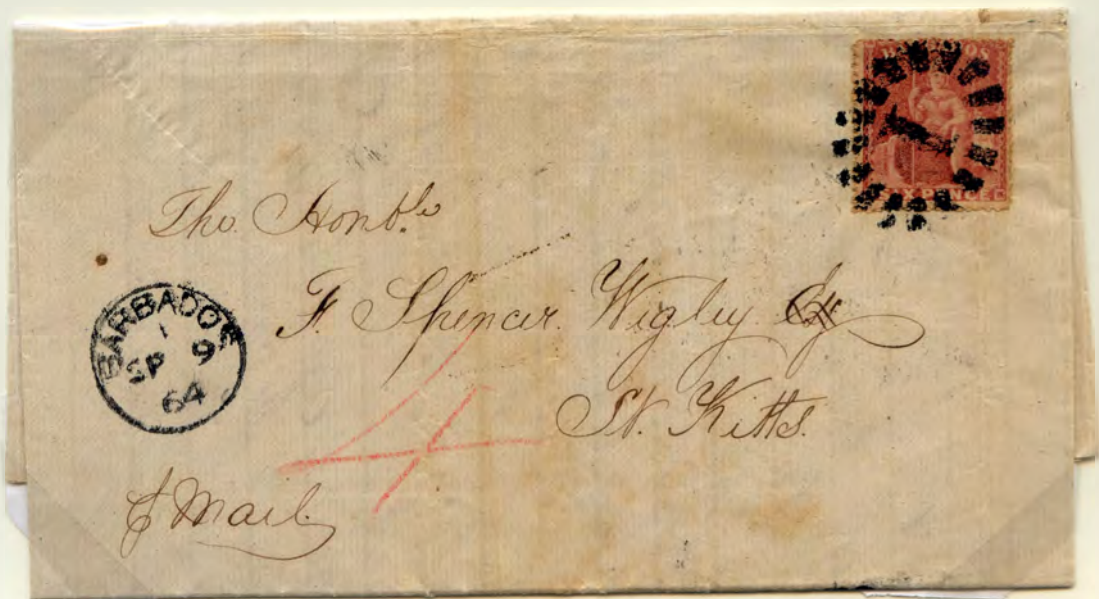 BARBADOS
1
SIX PENCE
The Honble
F. Spencer Wigley Esq
St. Kitts.
4
BARBADOS
1
SP 9
64
p Mail